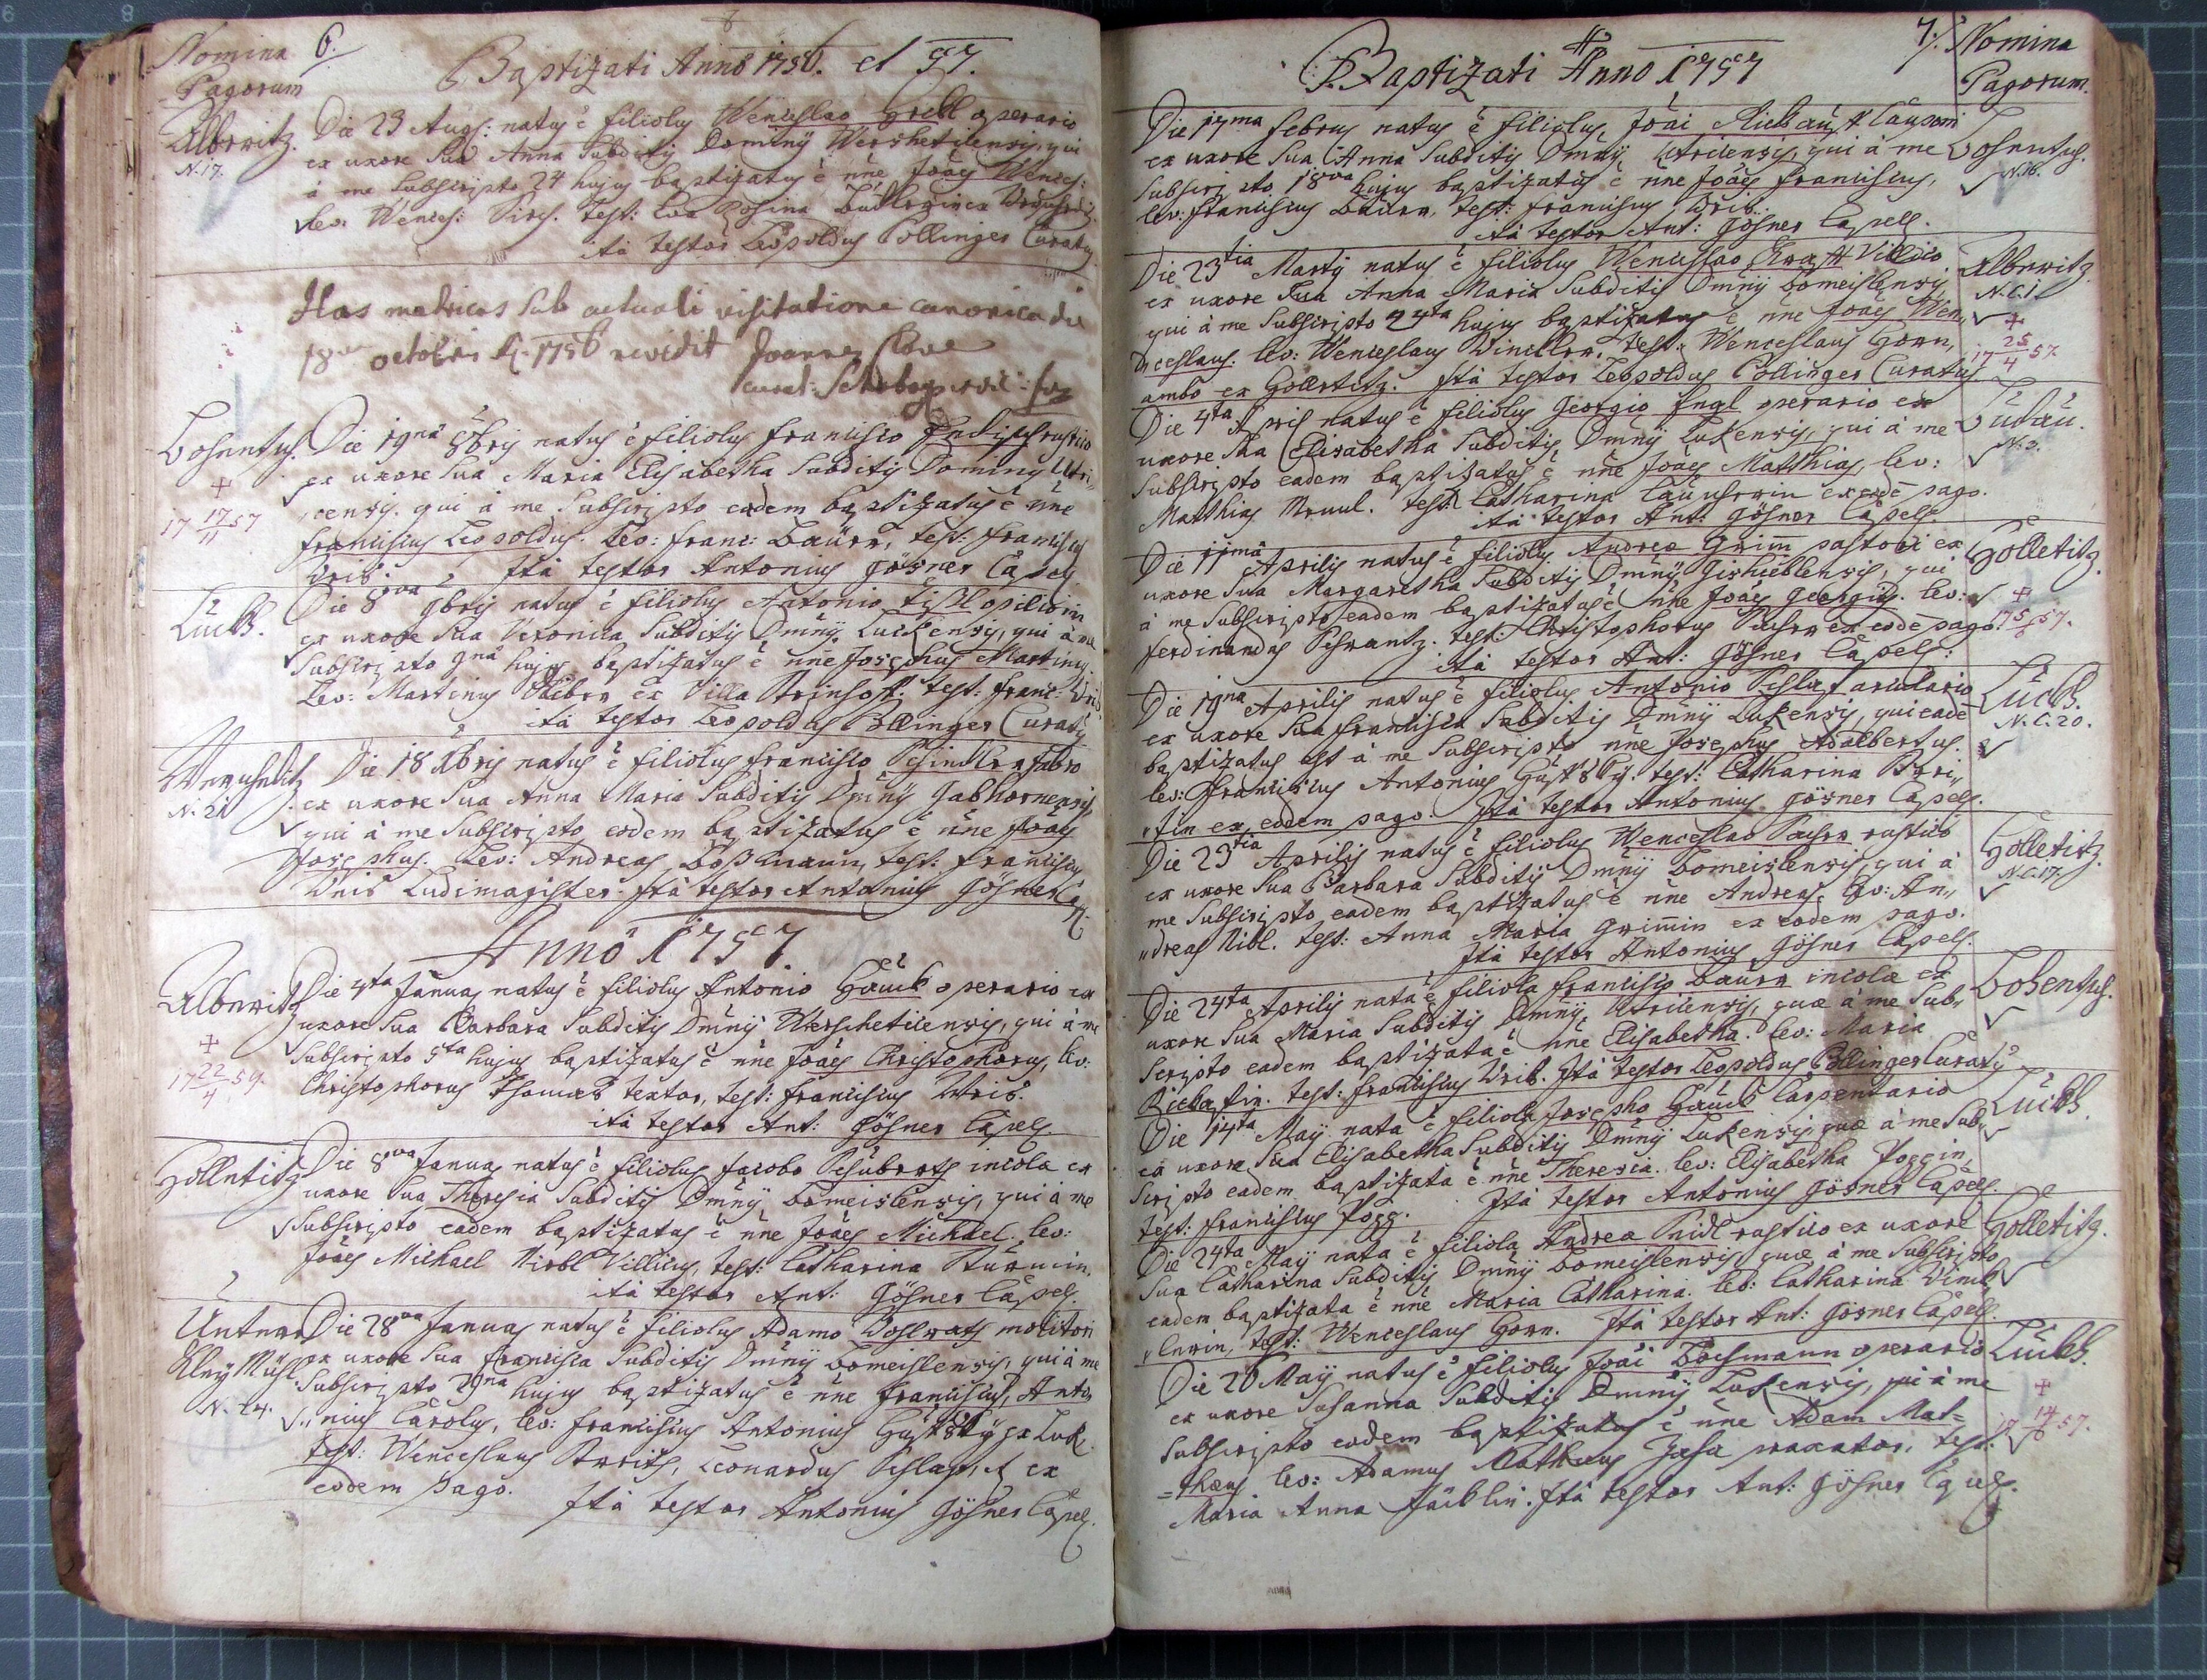 Nomina 6.
Pagorum
Baptizati Anno 1756. et 57.
Alberitz.
N. 17.
Die 23 Augs: natus ē filiolus Wenceslao Grebl operario
ex uxore Sua Anna Subditij Dominij Wershetitensis, qui
à me Subscripto 24 hujus baptizatus ē nñe Joães Wences:
lev: Wences: test: Eva Rosina
ità testor Leopoldus Pollinger Curatus
Has matricas sub actuali visitatione canonica die
18va octobris A. 1756 revidit Joannes
Die 19nâ 8bris natus ē filiolus francisco rustico
+
17 17/11 57
ex uxore Sua Maria Elisabetha Subditij Dominij Utri„
„censis. qui à me Subscripto eadem baptizatus ē nñe
franciscus Leopoldus. Lev: franc: Baüer, test: franciscus
Wrib. Ità testor Antonius Gösner Capel.
Luckh.
Die 8va 9bris natus ē filiolus Antonio opilioni
ex uxore Sua Veronica Subditij Dmñij Luckensis, qui à me
Subscripto 9nâ hujus baptizatus ē nñe Josephus Martinus.
Lev: Martinus ex Villa test: franc: Wrib.
ità testor Leopoldus Pollinger Curatus
N. 21
Die 18 Xbris natus ē filiolus francisco Schindler fabro
ex uxore Sua Anna Maria Subditij Dmñij Gabhornensis,
qui à me Subscripto eodem baptizatus ē nñe Joães
Josephus. Lev: Andreas Loßmann, test: franciscus
Wrib Ludimagister. Ità testor Antonius Gösner Cap.
Anno 1757.
Alberitz
+
17 22/4 59.
Die 4ta Januar natus ē filiolus Antonio Haück operario ex
uxore Sua Barbara Subditij Dmñij Werschetitensis, qui à me
Subscripto 5ta hujus baptizatus ē nñe Joães Christophorus, lev:
Christophorus Thomas textor, test: franciscus Wrib.
ità testor Ant: Gösner Capell.
Golletitz
Die 8va Januar natus ē filiolus Jacobo Schüberth incola ex
uxore Sua Theresia Subditij Dmñij Lomeislensis, qui à me
Subscripto eadem baptizatus ē nñe Joães Michael. lev:
Joães Michael Nirbl Villicus, test: Catharina Stürmin.
ità testor Ant: Gösner Capel.
Unter
Kley Mühl.
N. 24.
Die 28va Januar natus ē filiolus Adamo Wohlrath molitori
ex uxore Sua francisca Subditij Dmñij Lomeislensis, qui à me
Subscripto 29nâ hujus baptizatus ē nñe franciscus, Anto„
„nius Carolus, lev: franciscus Antonius ex Luk.
test: Wenceslaus Leonardus et ex
eodem pago.
Ità testor Antonius Gösner Capel.
7. Nomina
Pagorum.
Baptizati Anno 1757
N. 16.
Die 17ma februs natus ē filiolus, Joãi
ex uxore Sua Anna Subditij Dmñij Utricensis, qui à me
Subscripto 18va hujus baptizatus ē nñe Joães franciscus,
lev: franciscus Baüer, test: franciscus Wrib.
ità testor Ant: Gösner Capell.
Alberitz.
N.C. 1.
+
17 25/4 57.
Die 23tia Martij natus ē filiolus Wenceslao Villico
ex uxore Sua Anna Maria Subditij Dmñij Lomeislensis
qui à me Subscripto 24ta hujus baptizatus ē nñe Joães Wen„
„ceslaus. lev: Wenceslaus Winckler, test: Wenceslaus Horn,
ambo ex Golletitz. Ità testor Leopoldus Pollinger Curatus.
N: 3.
Die 4ta April natus ē filiolus Georgio Engl operario ex
uxore Sua Elisabetha Subditij Dmñij Lukensis, qui à me
Subscripto eadem baptizatus ē nñe Joães Matthias, lev:
Matthias test: Catharina ex eodē pago.
ità testor Ant: Gösner Capell.
Golletitz.
+
17 5/6 57.
Die 11mâ Aprilis natus ē filiolus Andrea Grim̃ pastori ex
uxore Sua Margaretha Subditij Dmñij Gishueblensis, qui
à me Subscripto eadem baptizatus ē nñe Joães Georgius. lev:
ferdinandus test: Christophorus ex eodē pago.
ità testor Ant: Gösner Capell:
Luckh.
N.C. 20.
Die 19nâ Aprilis natus ē filiolus Antonio arculario
ex uxore Sua francisca Subditij Dmñij Lukensis, qui eadē
baptizatus est à me Subscripto nñe Josephus Adalbertus.
lev: franciscus Antonius test: Catharina
ex eodem pago. Ità testor Antonius Gösner Capell.
Golletitz.
N.C. 17.
Die 23tia Aprilis natus ē filiolus Wenceslao rustico
ex uxore Sua Barbara Subditij Dmñij Lomeislensis, qui à
me Subscripto eadem baptizatus ē nñe Andreas, lev: An„
„dreas Nibl. test: Anna Maria Grim̃in ex eodem pago.
Ità testor Antonius Gösner Capell.
Die 24ta Aprilis nata ē filiola francisco Baüer incola ex
uxore Sua Maria Subditij Dmñij Utricensis, quæ à me Sub„
Scripto eadem baptizata ē nñe Elisabetha. lev: Maria
test: franciscus Wrib. Ità testor Leopoldus Pollinger Curatus
Luckh.
Die 14ta Maij nata ē filiola Josepho Haück Carpentario
ex uxore Sua Elisabetha Subditij Dmñij Lukensis quæ à me Sub„
Scripto eadem baptizata ē nñe Theresia. lev: Elisabetha Poppin,
test: franciscus Popp. Ità testor Antonius Gösner Capell.
Golletitz.
Die 24ta Maij nata ē filiola Andrea rustico ex uxore
Sua Catharina Subditij Dmñij Lomeislensis, quæ à me Subscripto
eadem baptizata ē nñe Maria Catharina. lev: Catharina Winck„
„lerin, test: Wenceslaus Horn. Ità testor Ant: Gösner Capell.
Luckh.
+
Die 20 Maij natus ē filiolus Joãi Lochmann operario
ex uxore Susanna Subditij Dmñij Lukensis, qui à me
Subscripto eodem baptizatus ē nñe Adam Mat=
=thæus lev: Adamus Matthæus test:
Maria Anna Ità testor Ant: Gösner Capell.